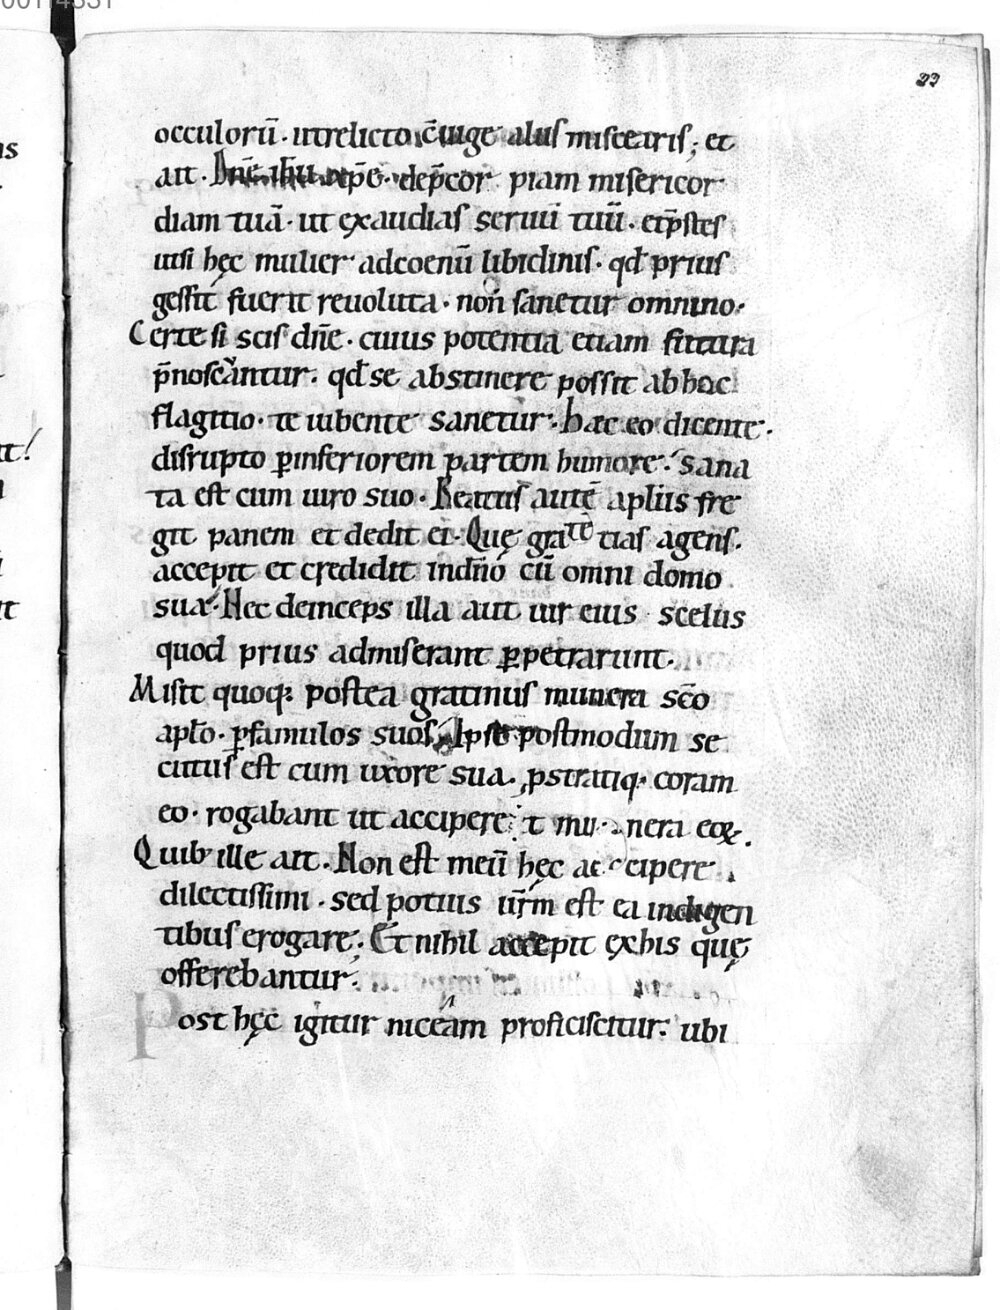 23
occulorū · ut relicto c̄iuge aliis miscearis ; et
ait · Dn̄e ih̄u xp̄e · dep̄cor piam misericor
diam tuā · ut exaudias seruū tuū · et p̄stes
ut si hęc mulier ad coenū libidinis · qđ prius
gessit fuerit reuoluta · non sanetur omnino ·
Certe si scis dn̄e · cuius potentia etiam futura
p̄noscantur . qđ se abstinere possit ab hoc
flagitio · te iubente sanetur . Hæc eo dicente .
disrupto ꝑ inferiorem partem humore . sana
ta est cum uiro suo · Beatus autē aplus fre
git panem et dedit ei . Quę gratias agens .
accepit et credidit in dn̄o cū omni domo
sua . Nec deinceps illa aut uir eius scelus
quod prius admiserant ꝑpetrarunt .
Misit quoq; postea gratinus munera sc̄o
apło · ꝑ famulos suos . Ipse postmodum se
cutus est cum uxore sua . ꝓstratiq; coram
eo · rogabant ut acciperet munera eoꝝ .
Quib ille ait . Non est meū hęc accipere .
dilectissimi · sed potius ur̄m est ea indigen
tibus erogare . Et nihil accepit ex his quę
offerebantur .
Post hęc igitur niceam proficiscitur . ubi